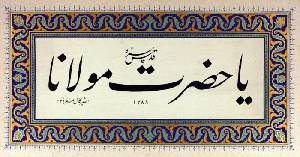 قدس سره
يا حضرت مولانا
١٣٨٨